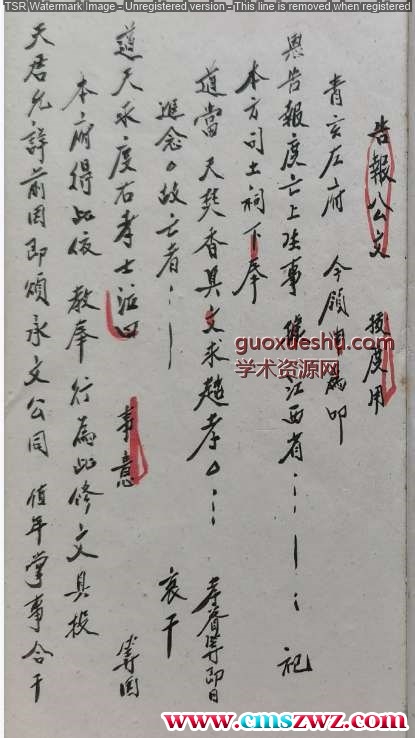 TSR Watermark Image - Unregistered version - This line is removed when registered
告報公文 拔度用
青玄左府 今領
與告報度亡上生事 江西省……｜… 祀
本方司土祠下奉
道當天焚香具文求超孝○… 孝眷等即日 哀干
追念○故亡者…｜
道天永度右孝士 泣曰 事意 等因
本府得此依教奉行為此修文具投
天君允詳前因即頒承文公同 值年掌事合干
guoxueshu.com
学术资源网
www.cmszwz.com